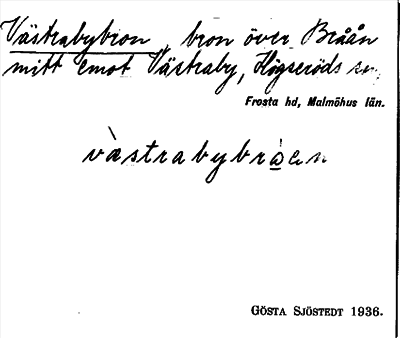 Västrabybron, bron över Bråån
mitt emot Västraby, Högseröds sn,
Frosta hd, Malmöhus län.
vàstrabybròen
GÖSTA SJÖSTEDT 1936.